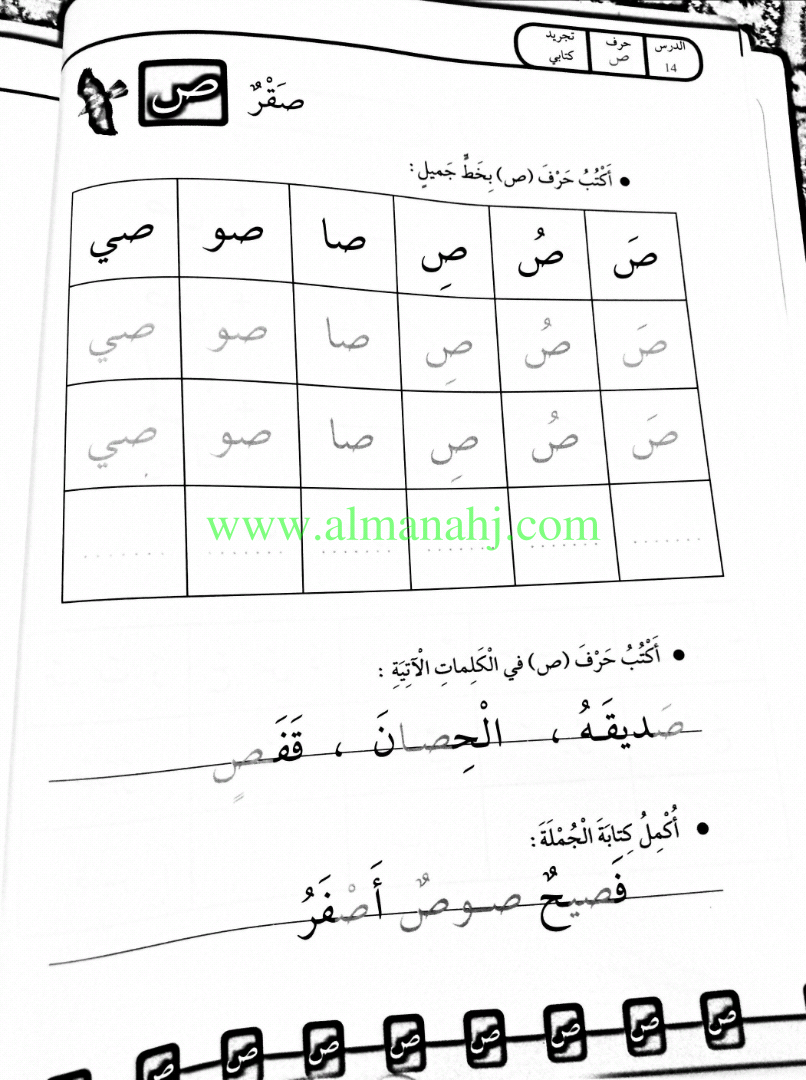 الدرس 14 حرف ص تجريد كتابي
صَقْرٌ ص
• أَكْتُبُ حَرْفَ (ص) بِخَطٍّ جَميلٍ :
صَ صُ صِ صا صو صي
صَ صُ صِ صا صو صي
صَ صُ صِ صا صو صي
www.almanahj.com
• أَكْتُبُ حَرْفَ (ص) في الْكَلِماتِ الْآتِيَةِ :
صَديقَهُ ، الْحِصانَ ، قَفَصٍ
• أُكْمِلُ كِتابَةَ الْجُمْلَةَ :
فَصيحٌ صوصٌ أَصْفَرُ
ص ص ص ص ص ص ص ص